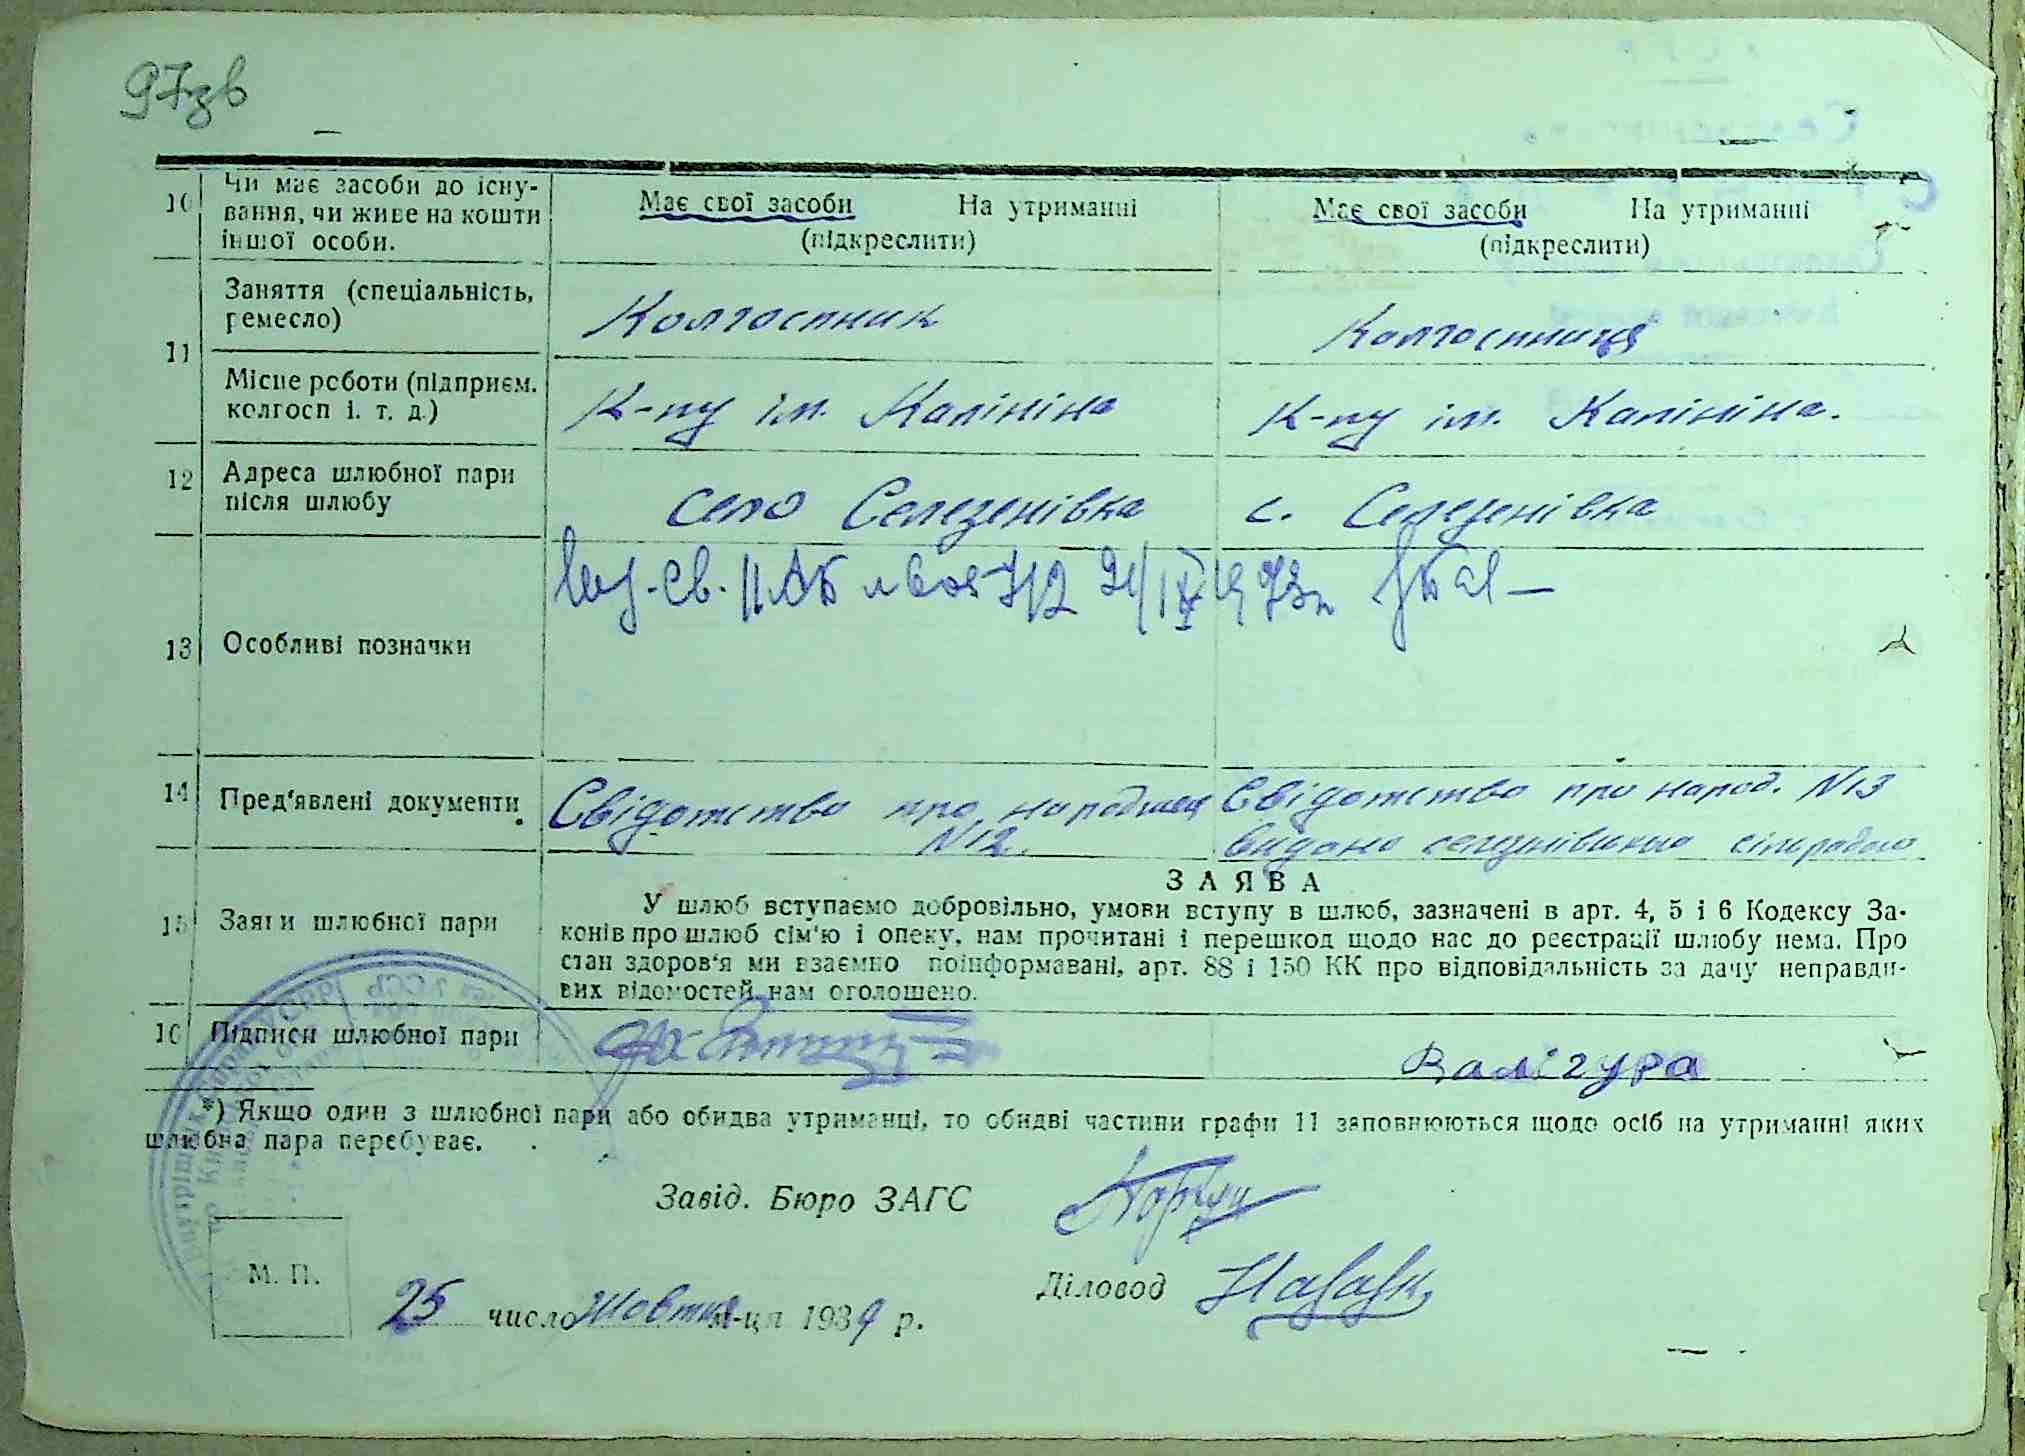 97зв
10 Чи має засоби до існу-
вання, чи живе на кошти
іншої особи.
Має свої засоби На утриманні
(підкреслити)
Має свої засоби На утриманні
(підкреслити)
11 Заняття (спеціальність,
ремесло)
Колгоспник
Колгоспниця
Місце роботи (підприєм.
колгосп і. т. д.)
К-пу ім. Калініна
К-пу ім. Калініна.
12 Адреса шлюбної пари
після шлюбу
село Селезенівка
с. Селезенівка
13 Особливі позначки
14 Пред'явлені документи
Свідотство про народження
N12.
Свідотство про народ. N13
видано сільрадою
15 Заяви шлюбної пари
ЗАЯВА
У шлюб вступаємо добровільно, умови вступу в шлюб, зазначені в арт. 4, 5 і 6 Кодексу За-
конів про шлюб сім'ю і опеку, нам прочитані і перешкод щодо нас до реєстрації шлюбу нема. Про
стан здоров'я ми взаємно поінформавані, арт. 88 і 150 КК про відповідальність за дачу неправди-
вих відомостей нам оголошено.
16 Підписи шлюбної пари
Валігура
*) Якщо один з шлюбної пари або обидва утриманці, то обидві частини графи 11 заповнюються щодо осіб на утриманні яких
шлюбна пара перебуває.
Завід. Бюро ЗАГС
Діловод
М. П.
25 число Жовтня м-ця 1939 р.